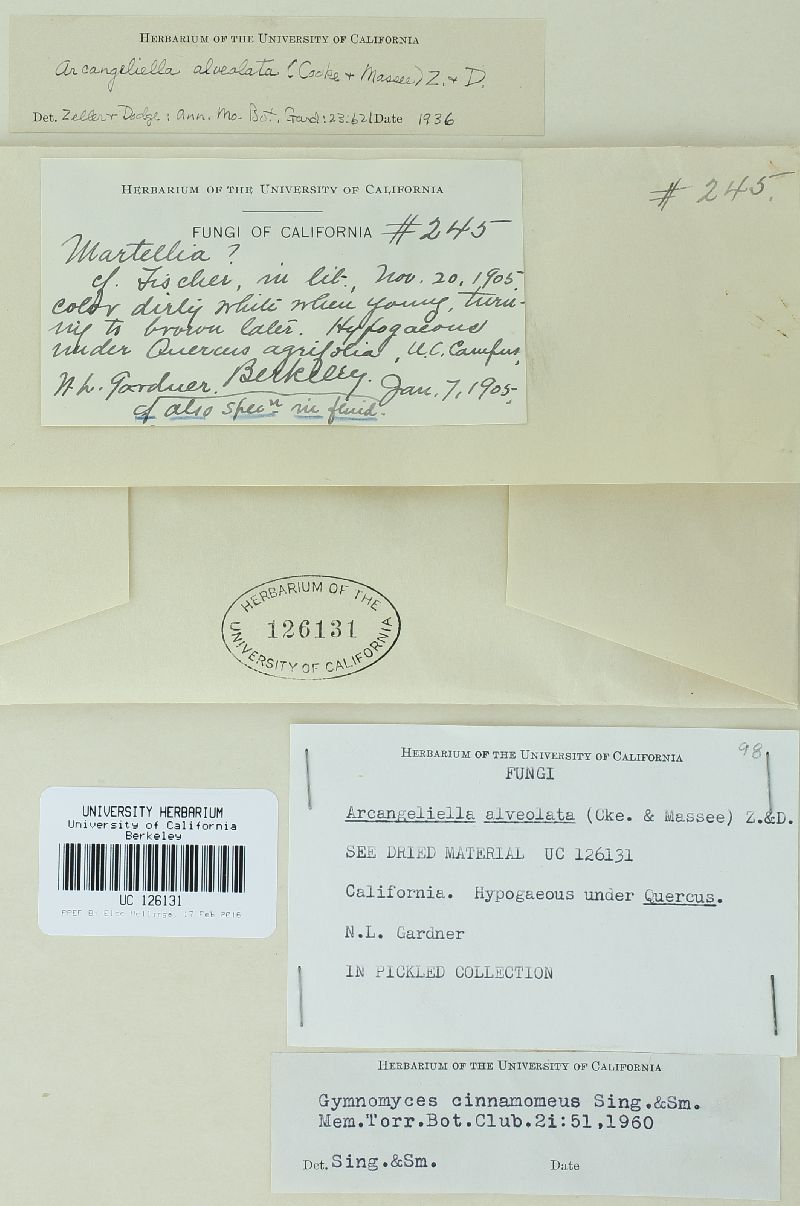 HERBARIUM OF THE UNIVERSITY OF CALIFORNIA
Arcangeliella alveolata (Cooke & Massee) Z. & D.
Det. Zeller & Dodge: Ann. Mo. Bot. Gard: 23:621 Date 1936
# 245.
HERBARIUM OF THE UNIVERSITY OF CALIFORNIA
FUNGI OF CALIFORNIA # 245
Martellia ?
cf. Fischer, in lit., Nov. 20, 1905.
color dirty white when young, turn-
ing to brown later. Hypogaeous
under Quercus agrifolia, U.C. Campus,
N.L. Gardner. Berkeley. Jan. 7, 1905.
cf also specn in fluid.
HERBARIUM OF THE
126131
UNIVERSITY OF CALIFORNIA
98
HERBARIUM OF THE UNIVERSITY OF CALIFORNIA
FUNGI
Arcangeliella alveolata (Cke. & Massee) Z.&D.
SEE DRIED MATERIAL UC 126131
California. Hypogaeous under Quercus.
N.L. Gardner
IN PICKLED COLLECTION
UNIVERSITY HERBARIUM
University of California
Berkeley
UC 126131
HERBARIUM OF THE UNIVERSITY OF CALIFORNIA
Gymnomyces cinnamomeus Sing.&Sm.
Mem.Torr.Bot.Club.2i:51,1960
Det. Sing.&Sm. Date